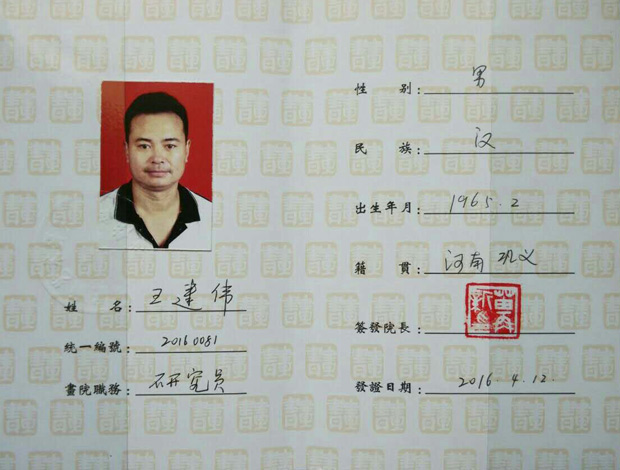 姓　名：王建伟
統一編號：20160081
畫院職務：研究员
性　别：男
民　族：汉
出生年月：1965.2
籍　貫：河南巩义
簽發院長：
發證日期：2016.4.12.